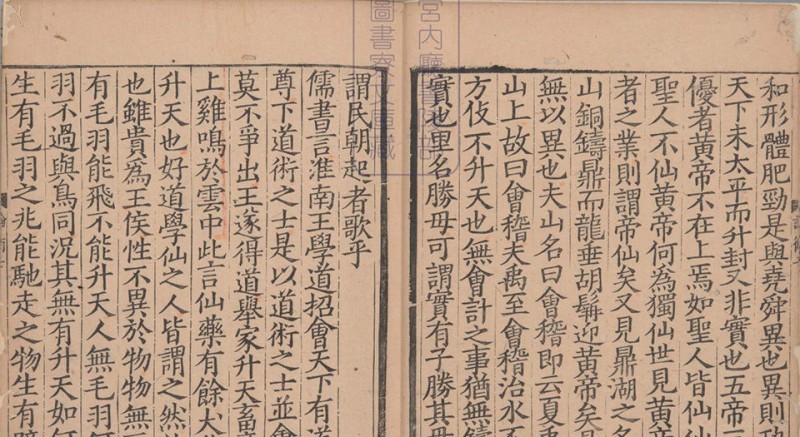 和形體肥勁是與堯舜異也異則功
天下未太平而升封又非實也五帝三
優者黃帝不在上焉如聖人皆仙仙
聖人不仙黃帝何為獨仙世見黃帝
者之業則謂帝仙矣又見鼎湖之名
山銅鑄鼎而龍垂胡髯迎黃帝矣是
無以異也夫山名曰會稽即云夏禹
山上故曰會稽夫禹至會稽治水不
方伎不升天也無會計之事猶無鑄
實也里名勝母可謂實有子勝其母
謂民朝起者歌乎
儒書言淮南王學道招會天下有道
尊下道術之士是以道術之士並會
莫不爭出王遂得道舉家升天畜產
上雞鳴於雲中此言仙藥有餘犬雞
升天也好道學仙之人皆謂之然
也雖貴為王侯性不異於物物無
有毛羽能飛不能升天人無毛羽何
羽不過與鳥同況其無有升天如何
生有毛羽之兆能馳走之物生有蹄
宮內廳書陵部
圖書寮文庫藏